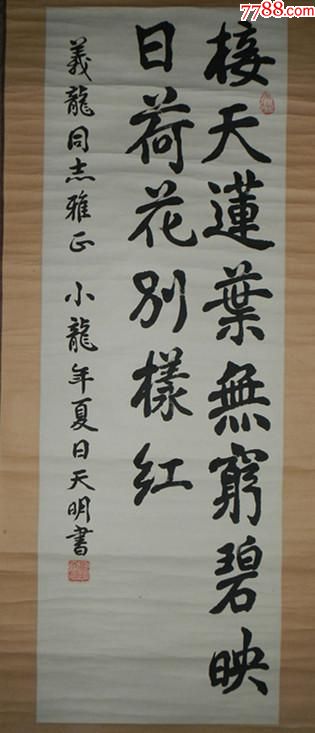 接天蓮葉無窮碧映
日荷花別樣红
義龍同志雅正 小龍年夏日天明書
7788.com